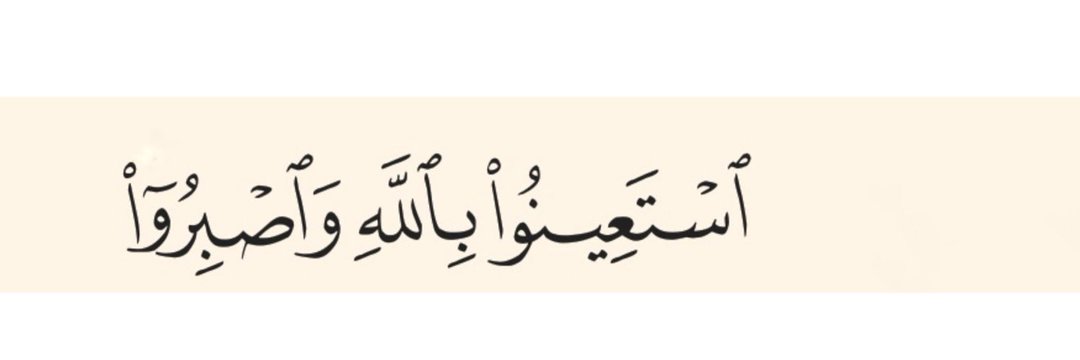 ٱسْتَعِينُوا۟ بِٱللَّهِ وَٱصْبِرُوٓا۟